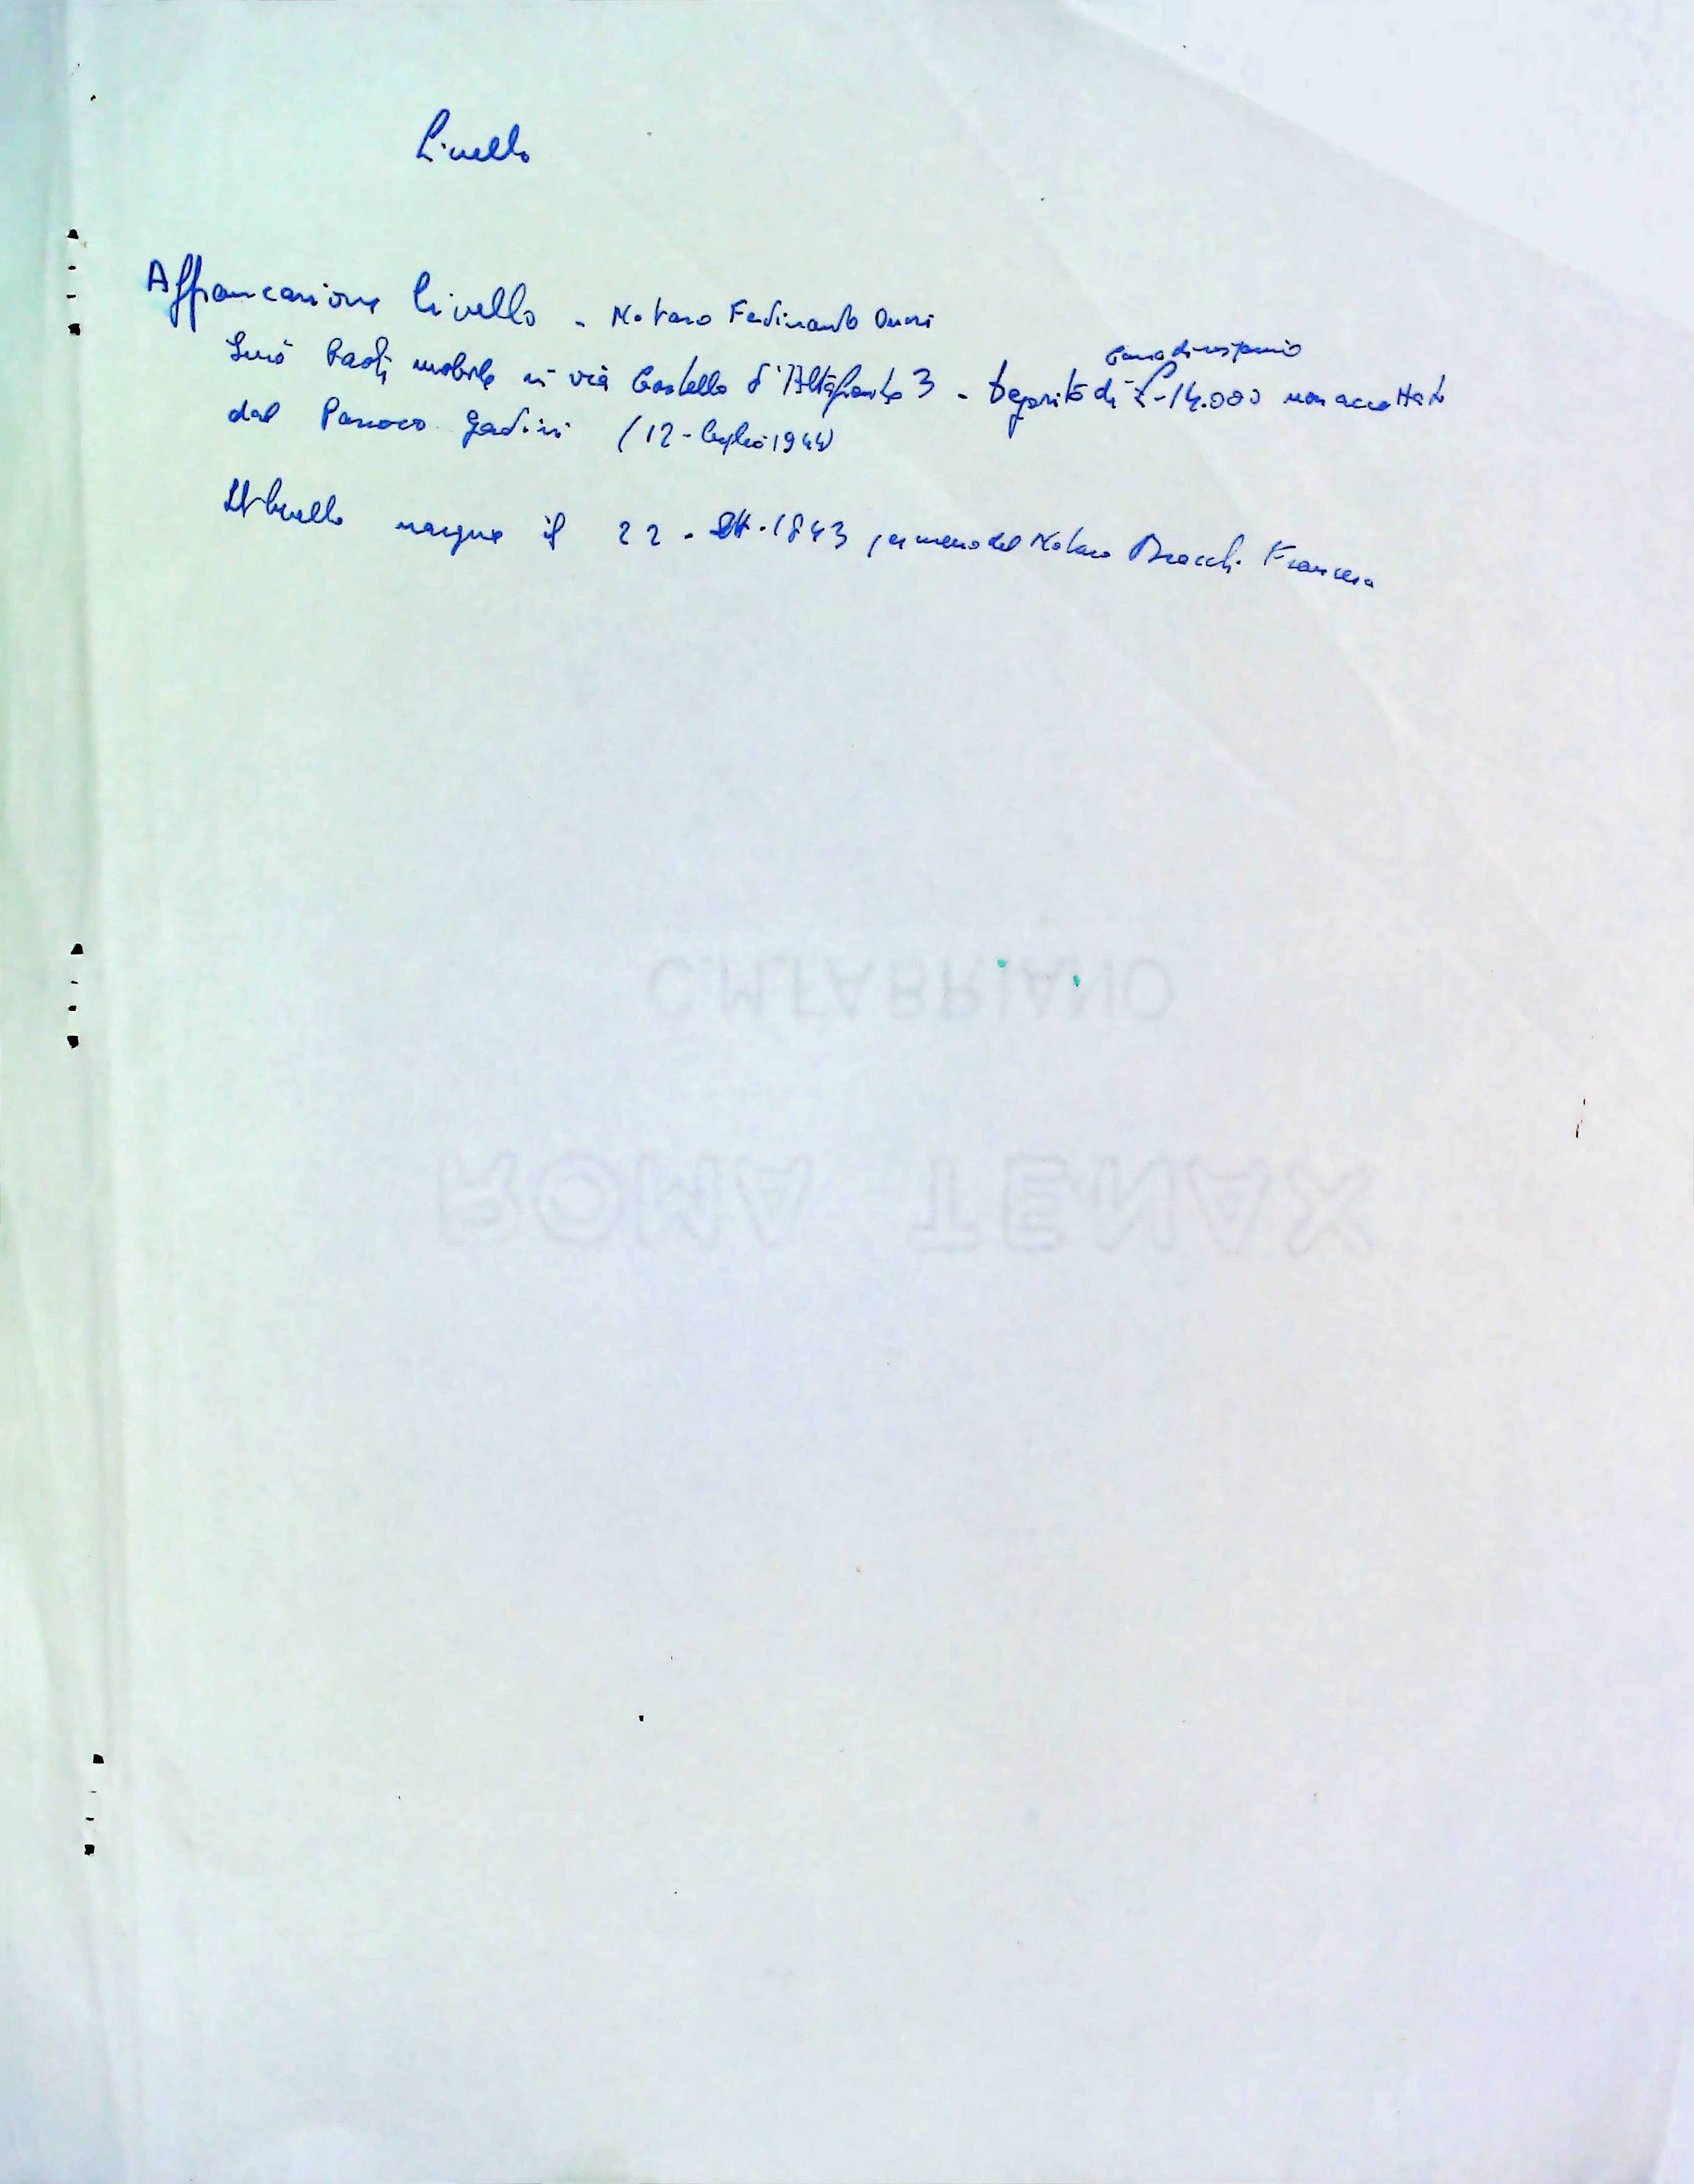 Livello
Affrancazione livello - Notaro Ferdinando
Cassa di risparmio
Paoli mobile in via Castello d'Altafronte 3 - Deposito di £ 14.000 non accettato
dal Parroco Gadini (12 - luglio 1944)
Il livello nacque il 22 - Ott. 1843 per mezzo del Notaro Bracchi Francesco
C.M.FABRIANO
ROMA TENAX